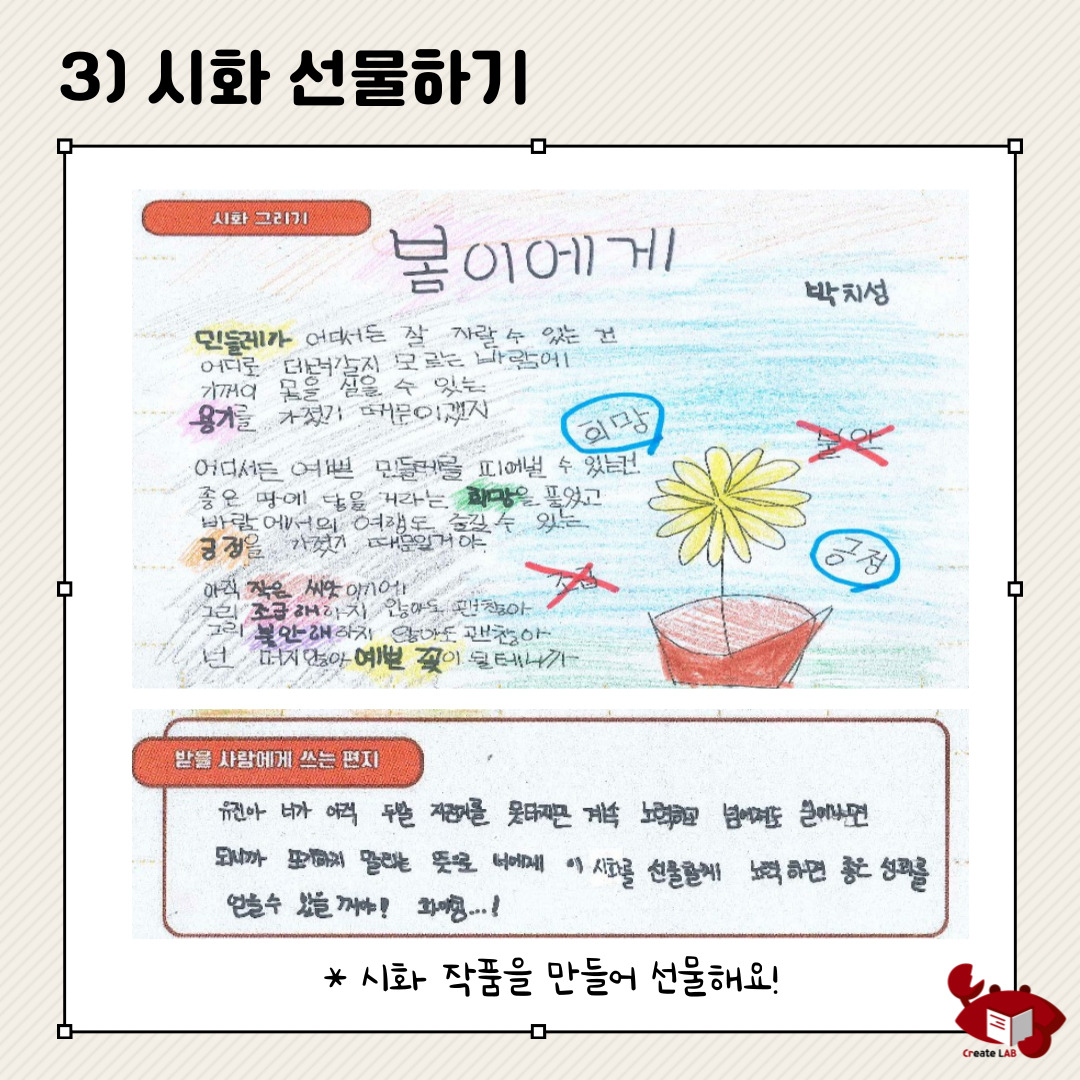 3) 시화 선물하기
시화 그리기
봄이에게
박치성
민들레가 어디서든 잘 자랄 수 있는 건
어디로 데려갈지 모르는 바람에
기꺼이 몸을 실을 수 있는
용기를 가졌기 때문이겠지
희망
불안
어디서든 예쁜 민들레를 피어낼 수 있는건
좋은 땅에 닿을 거라는 희망을 품었고
바람에서의 여행도 즐길 수 있는
긍정을 가졌기 때문일거야
긍정
조급
아직 작은 씨앗이기에
그리 조급해하지 않아도 괜찮아
그리 불안해하지 않아도 괜찮아
넌 머지않아 예쁜 꽃이 될테니까
받을 사람에게 쓰는 편지
유진아 너가 아직 두발 자전거를 못타지만 계속 노력하고 넘어져도 일어나면
되니까 포기하지 말라는 뜻으로 너에게 이 시화를 선물할게! 노력하면 좋은 성과를
얻을수 있을꺼야! 화이팅...!
* 시화 작품을 만들어 선물해요!
Create LAB